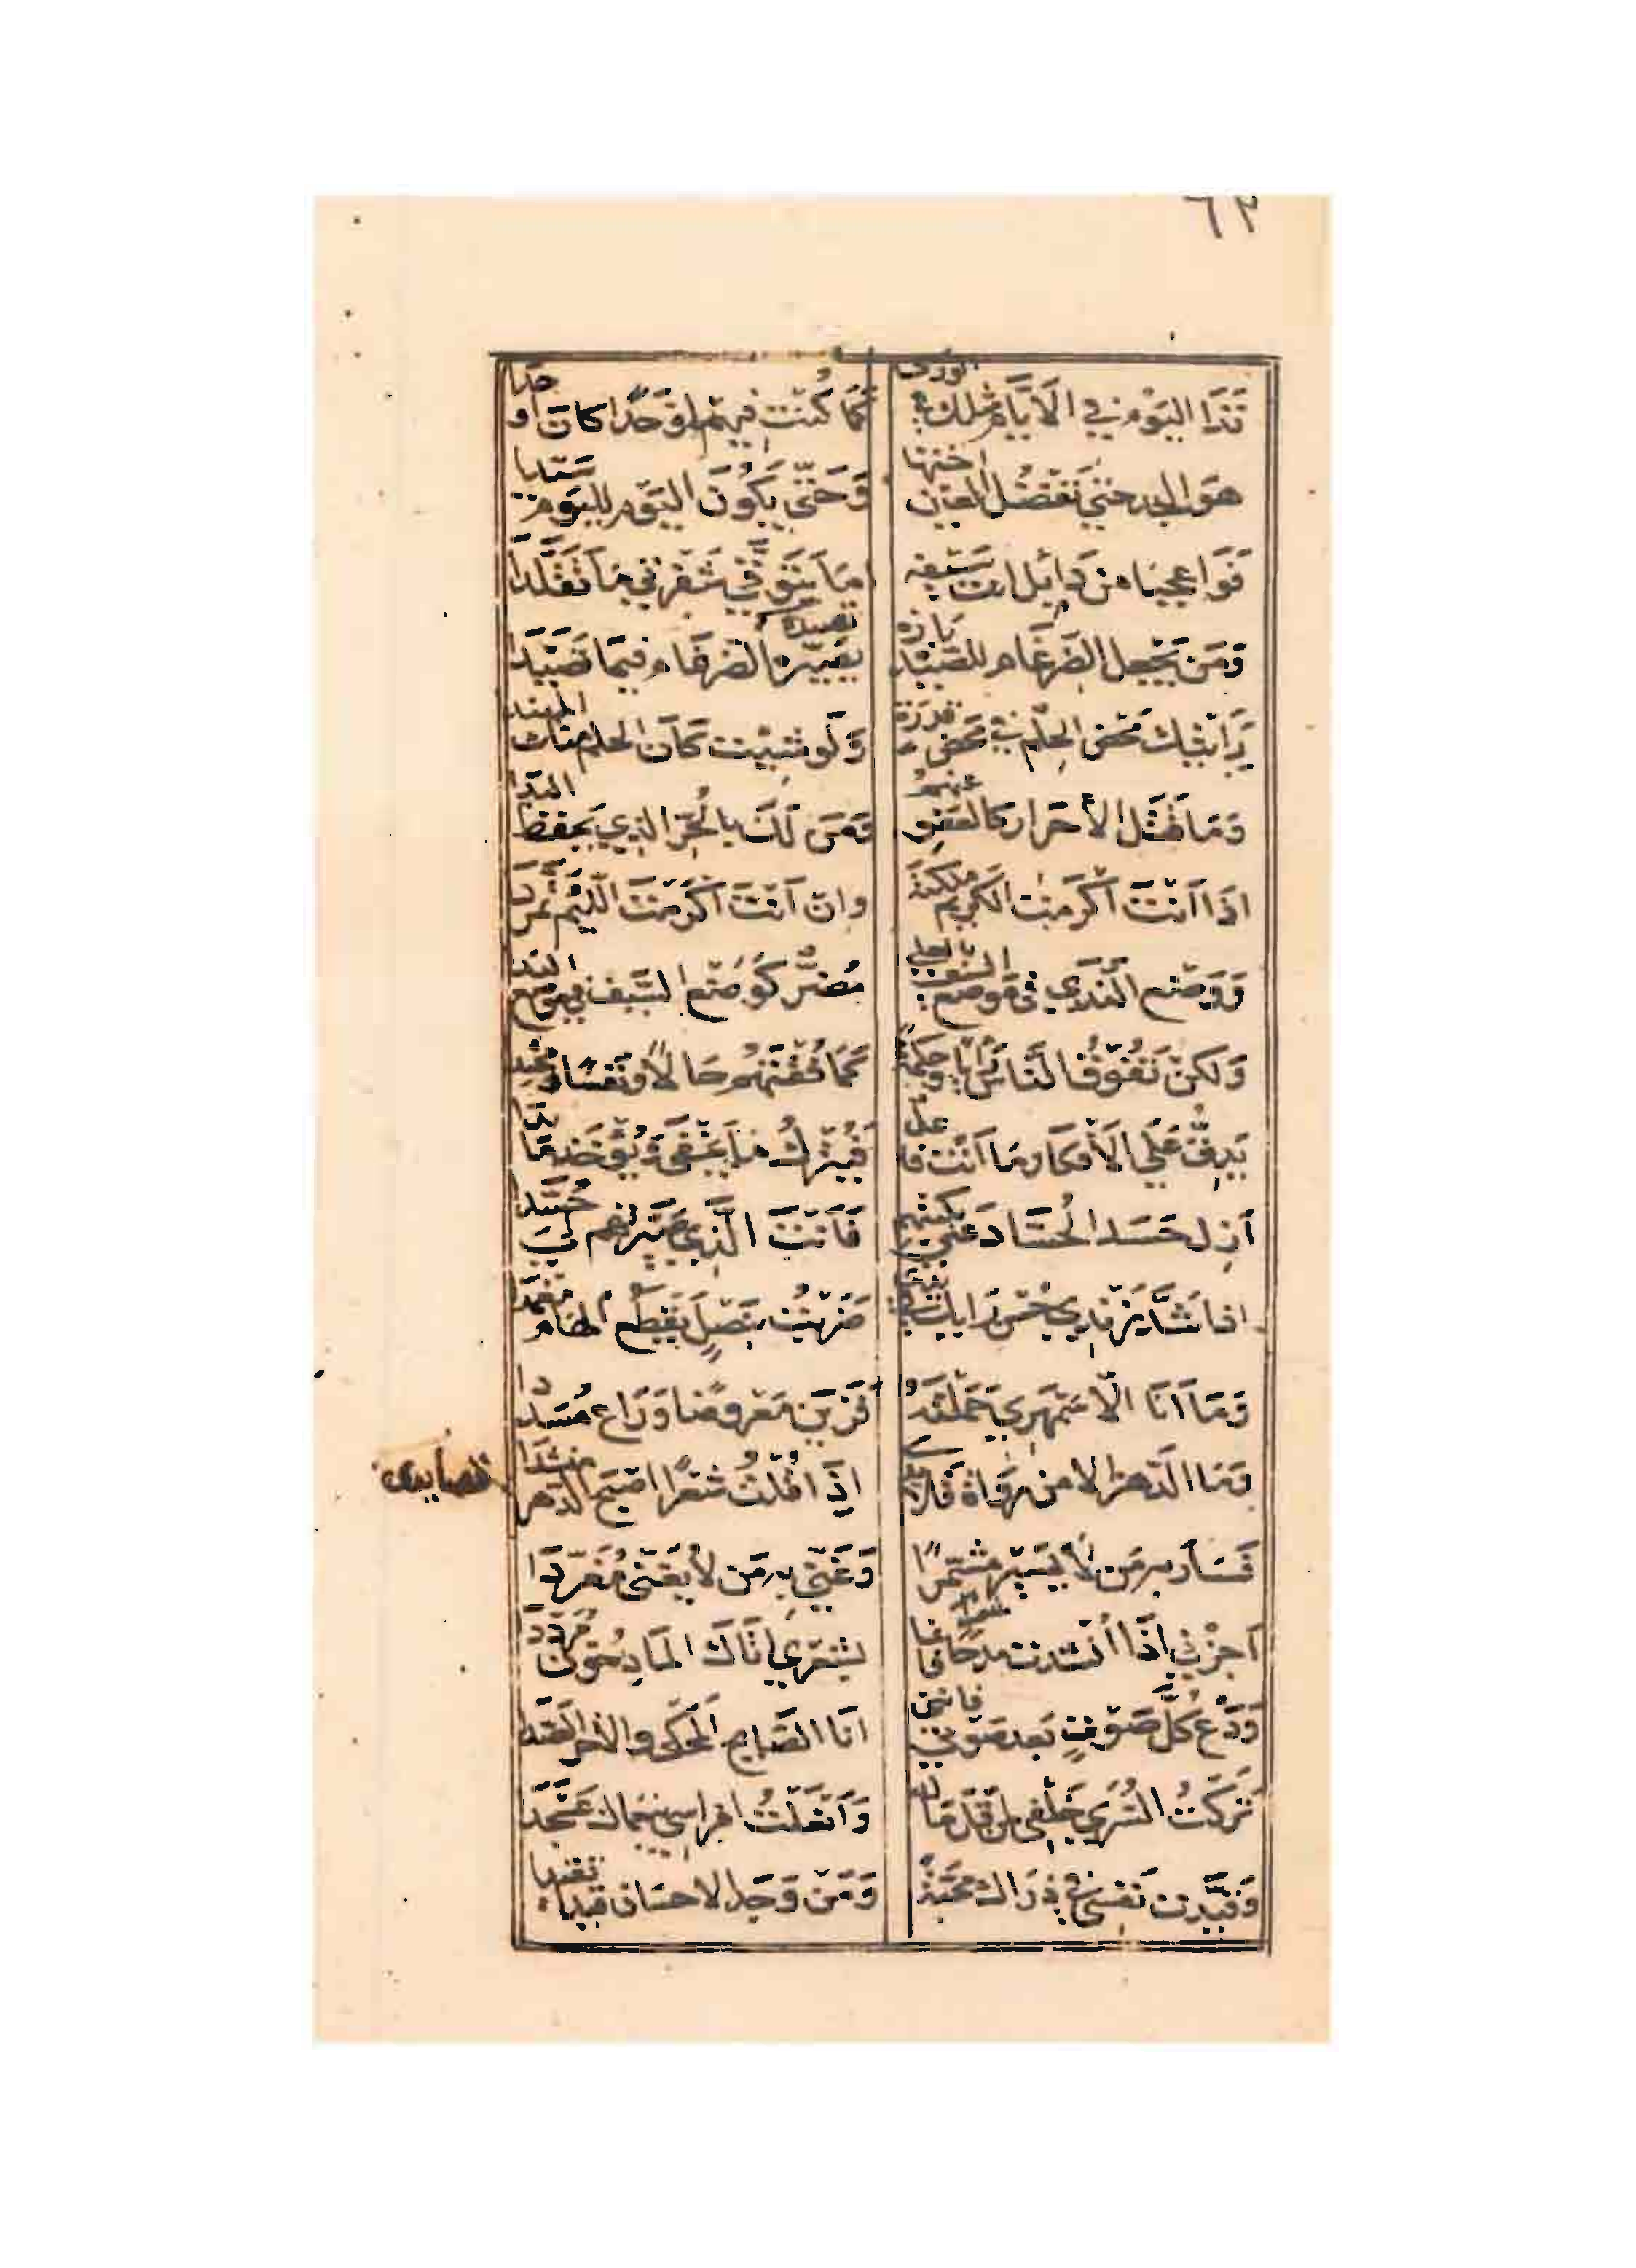 ٦٢
فَذَا اليَوْم في الاَيَّام مثلك في الورى كَمَا كُنْتَ فيهم اوْحَدًا كان اوحدا
هوَ الجد حتي تفضل العين اختها وَحَتّي يَكُونَ اليَوم لليَوم سَيّدا
فَوَا عجبا من دَايل انت سَيْفه اما يَتَوَقّي شَفرتي مَا تَقَلّدَا
وَمَن يَجعل الضرغام للصَيد بازه يصيّره الضرغام فيمَا تَصَيّدَا
تصيده
رَايتك مَحْض الحِلم في محض قدرة وَلَو شيت كَان الحلم منك المهندا
وَمَا قَتَل الأحرار كالعَفوِ عنهمُ وَمَن لَكَ بالحُرّ الذي يَحفظ اليدا
اذَا اَنْتَ اَكرَمت الكريم ملكته وان اَنتَ اَكرَمْتَ اللّئيم تمَرّدَا
وَوَضْع النّدَي في مَوضع السّيف بالعلي مُضرٌّ كَوَضْع السّيف في موضع الندا
وَلكنْ تَفُوقُ النّاسَ رَايا وَحكمةً كَمَا فُقْتَهُم حَالاً وَنفسًا وَمحتِدا
يَدِقُّ عَلَي الاَفكار مَا اَنْتَ فاعل فَيُتْرَكُ مَا يَخْفَى وَيُؤخَذ مَا بَدَا
اَزِل حَسَد الحُسّاد عَنّي بكبتهم فَاَنْتَ الّذي صَيّرتَهم لِيَ حُسَّدا
اذا شَدَّ زندي حُسْن رَايك في يدي ضَرَبْتُ بنَصْلٍ يَقطَع الهَام مغمدَا
وَمَا اَنَا الّا سَمْهَري حَمَلتَهُ فَزَيّن مَعْروضًا وَرَاع مُسَدّدا
وَمَا الدّهر الا من رُوَاة قلايدي اِذَا قُلْتُ شعرًا اصبَح الدّهر منشدَا
قصايدى
فَسَار به مَن لاَ يَسيرُ مشمّرًا وَغَنّي به مَن لاَ يغَنّى مُغَرّدَا
اَجزْني اِذَا اُنْشدت مدحًا فانما بشعْري اَتَاكَ المَادحُونَ مُرَدّدَا
وَدَع كلَّ صَوْتٍ بَعد صَوتي فانني اَنَا الصَايح المَحكى والاخر الصدا
تَرَكْتُ السُرَي خَلْفي لمن قَلّ مَاله وَاَنْعَلْتُ افراسي بنعماك عَسْجَدَا
وَقَيَّدت نَفسي في ذَرَاك مَحَبّةً وَمَنْ وَجَد الاحسَان قيدًا تقيدا